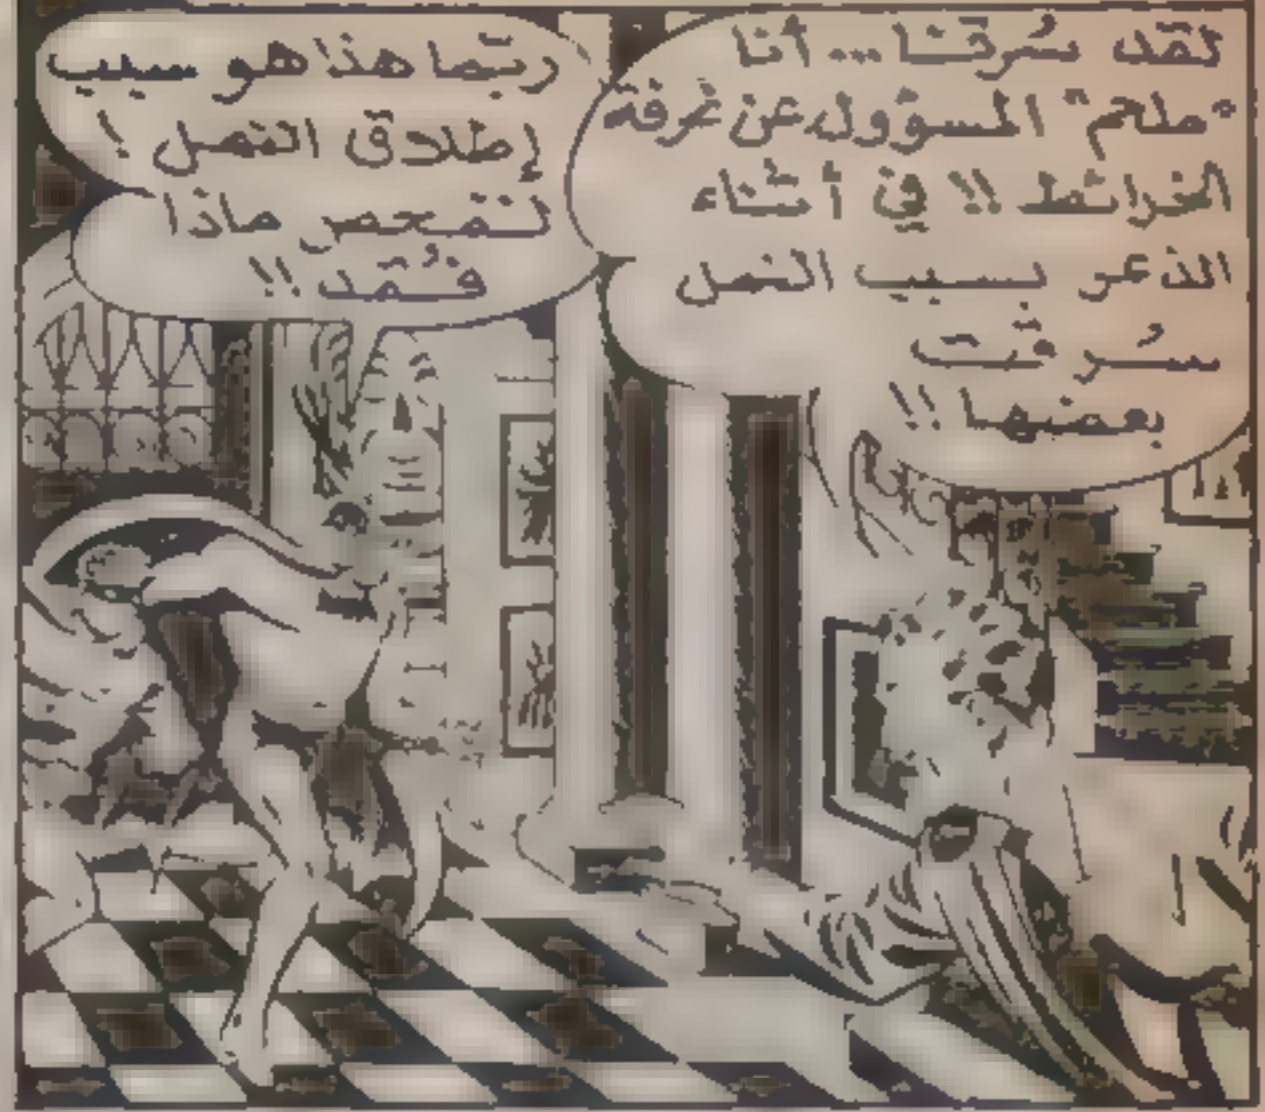 لقد سُرقنا... أنا
"ملحم" المسؤول عن غرفة
الخرائط!! في أثناء
الذعر بسبب النمل
سُرقت
بعضها!!
ربّما هذا هو سبب
إطلاق النمل!
لنتفحص ماذا
فُقد!!